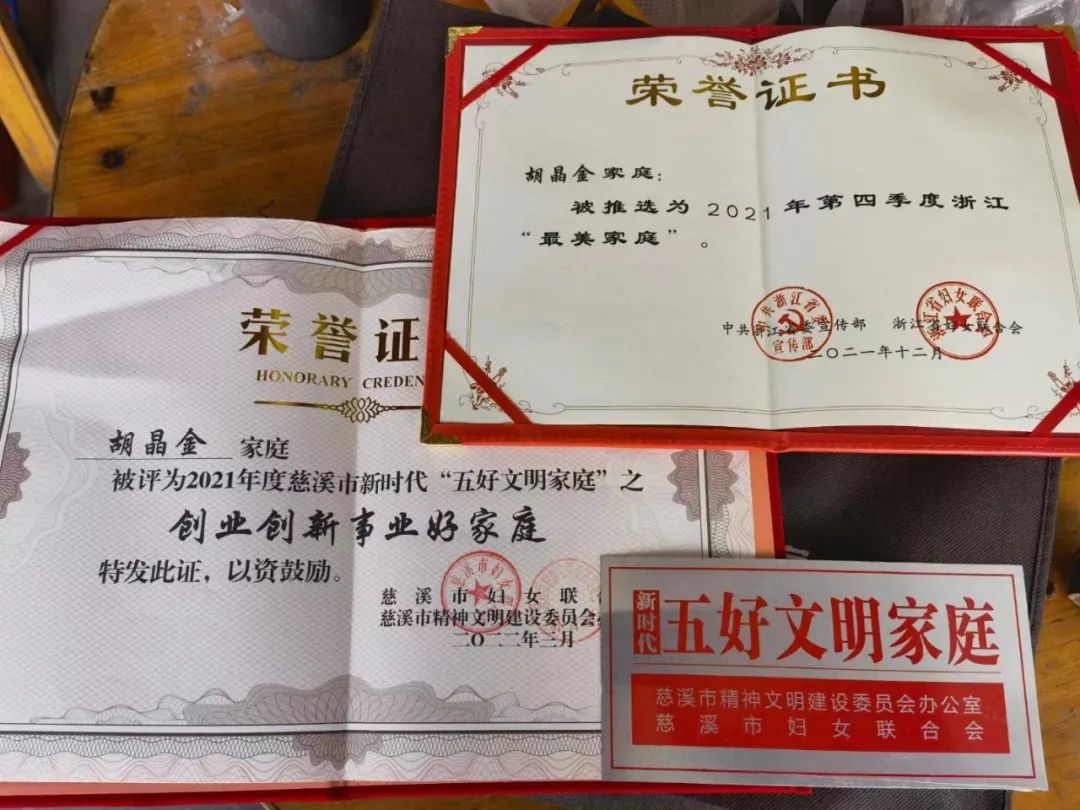 荣誉证书
胡晶金家庭：
被推选为2021年第四季度浙江
“最美家庭”。
中共浙江省委宣传部 浙江省妇女联合会
二〇二一年十二月
荣誉证
HONORARY CREDEN
胡晶金 家庭
被评为2021年度慈溪市新时代“五好文明家庭”之
创业创新事业好家庭
特发此证，以资鼓励。
慈溪市妇女联
慈溪市精神文明建设委员会
二〇二二年三月
新时代
五好文明家庭
慈溪市精神文明建设委员会办公室
慈溪市妇女联合会